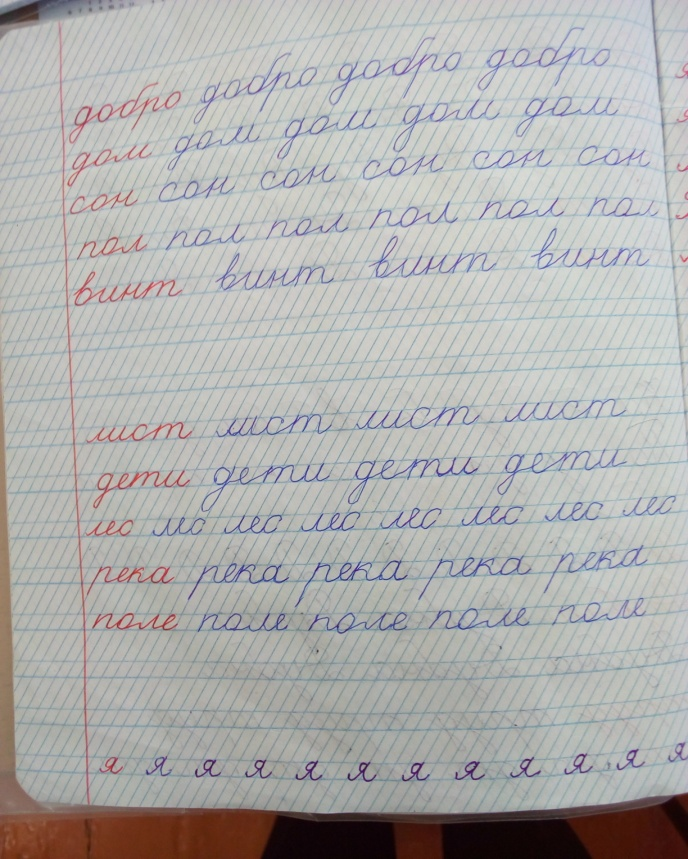 добро добро добро добро
дом дом дом дом дом
сон сон сон сон сон сон
пол пол пол пол пол пол
винт винт винт винт
лист лист лист лист
дети дети дети дети
лес лес лес лес лес лес лес лес
река река река река река
поле поле поле поле поле
я я я я я я я я я я я я